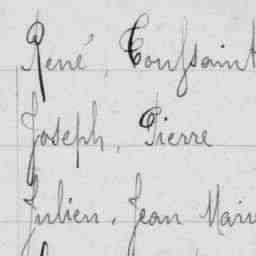 René, Toussaint
Joseph, Pierre
Julien, Jean Marie